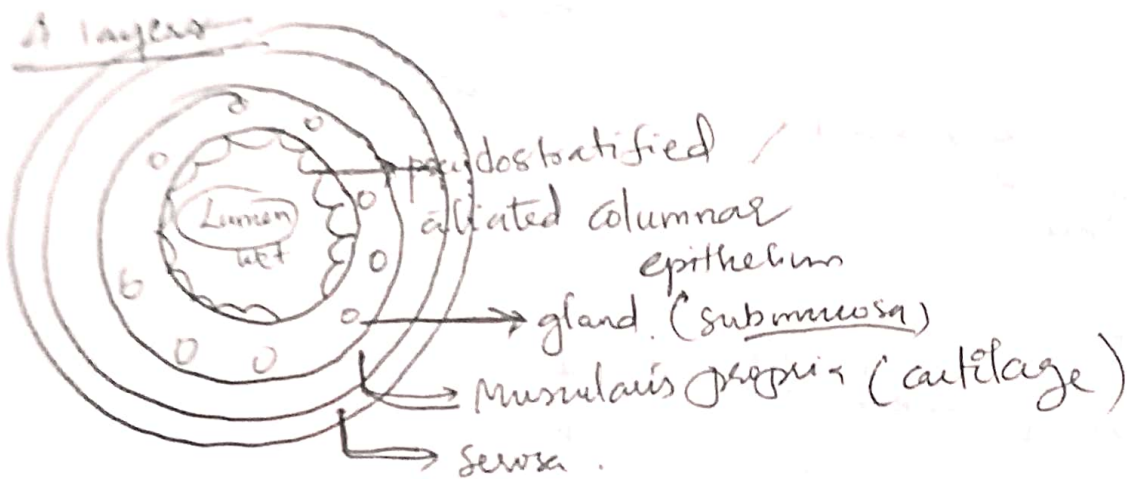 layers
pseudostratified
ciliated columnar
epithelium
Lumen
gland. (submucosa)
Muscularis propria (cartilage)
Serosa.